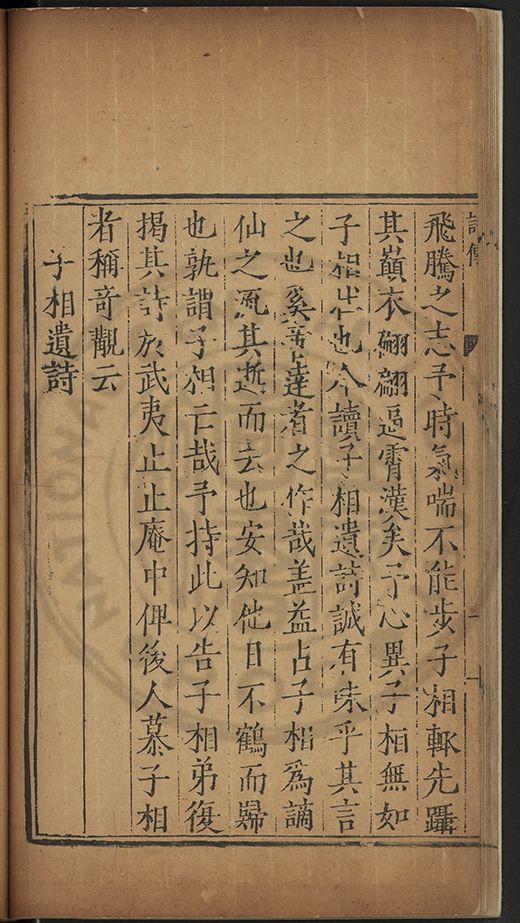 飛騰之志予時氣喘不能步子相輙先躡
其巔衣翩翩逼霄漢矣予心異子相無如
子相何也今讀子相遺詩誠有味乎其言
之也奚啻達者之作哉盖益占子相爲謫
仙之流其逝而去也安知他日不鶴而歸
也孰謂子相亡哉予持此以告子相弟復
揭其詩於武夷止止庵中俾後人慕子相
者稱奇觀云
子相遺詩